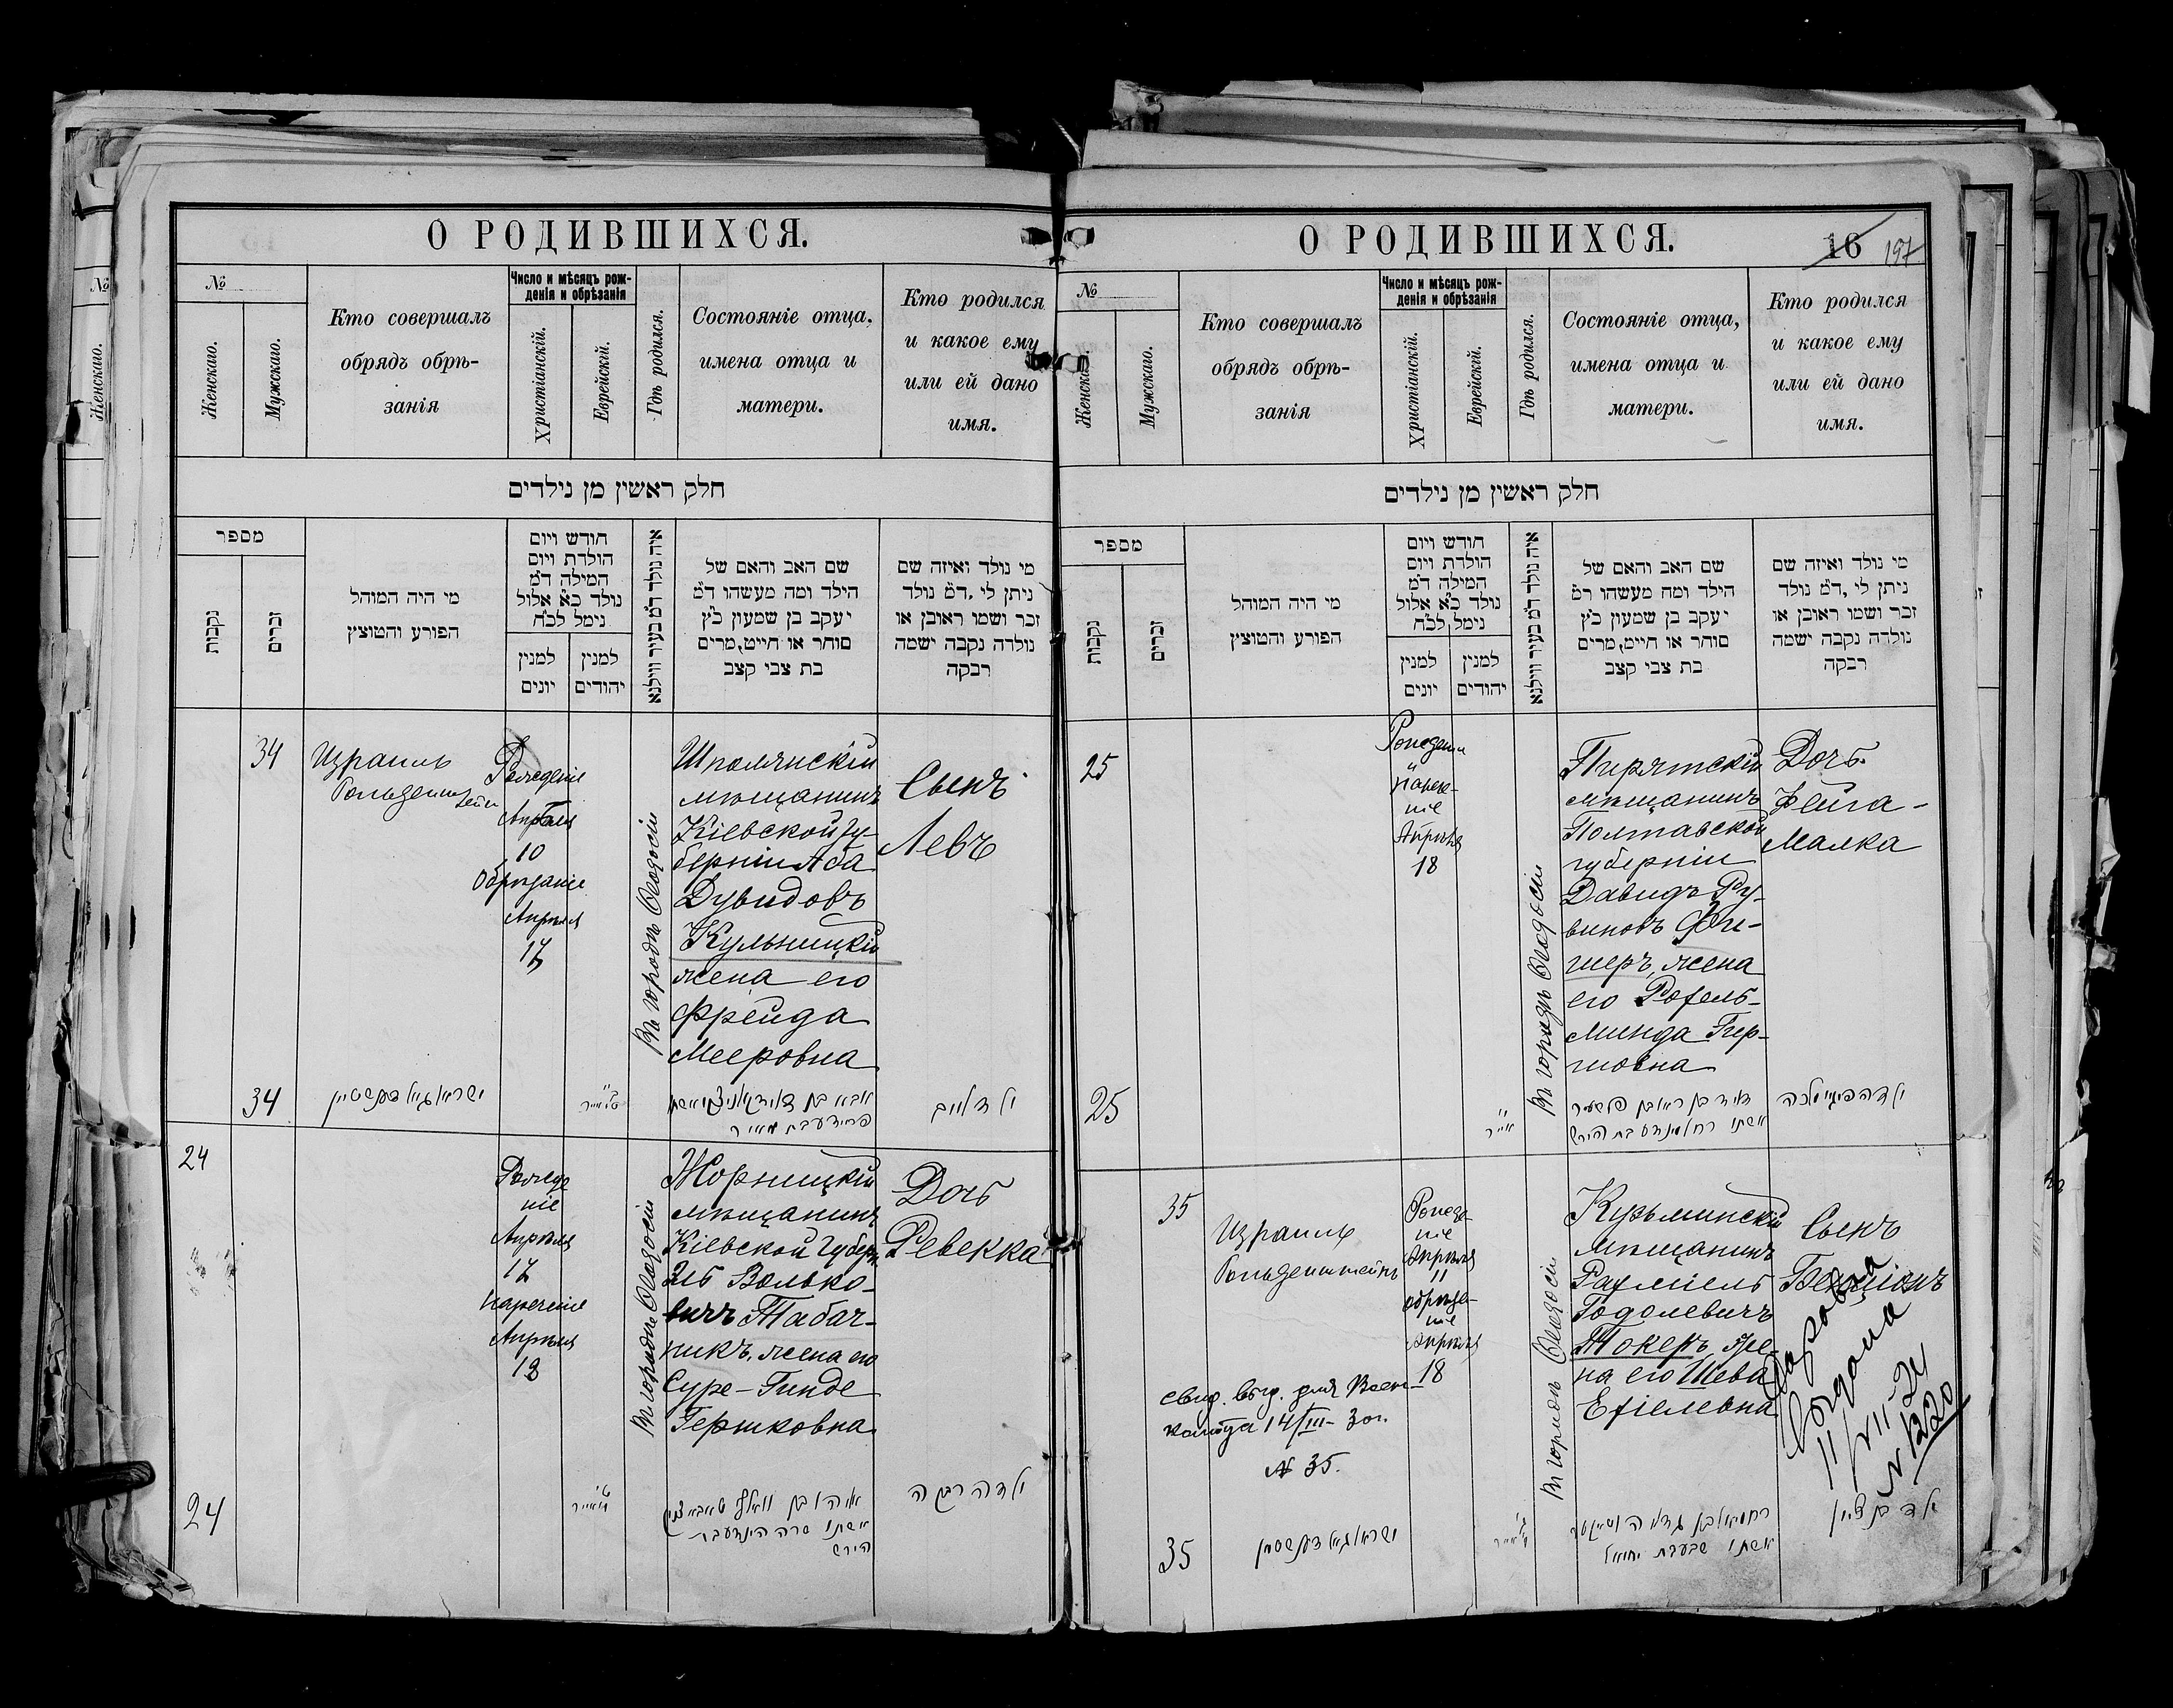 О РОДИВШИХСЯ.
№
Женскаго.
Мужскаго.
Кто совершалъ
обрядъ обрѣ-
занія
Число и мѣсяцъ рож-
денія и обрѣзанія
Христіанскій.
Еврейскій.
Гдѣ родился.
Состояніе отца,
имена отца и
матери.
Кто родился
и какое ему
или ей дано
имя.
חלק ראשין מן נילדים
מספר
נקבות
זכרים
מי היה המוהל
הפורע והמוצץ
חודש ויום
הולדת ויום
המילה ד״מ
נולד כ״א אלול
נימל לכ״ח
למנין
יונים
למנין
יהודים
איה נולד ד״מ בעיר ווילנא
שם האב והאם של
הילד ומה מעשהו ד״מ
יעקב בן שמעון כ״ץ
סוחר או חייט,מרים
בת צבי קצב
מי נולד ואיזה שם
ניתן לי ,ד״מ נולד
זכר ושמו ראובן או
נולדה נקבה ישמה
רבקה
34
Израиль
Гольденштейн
Рожденіе
Апрѣля
10
Обрѣзаніе
Апрѣля
17
Въ городѣ Ѳеодосіи
Шполянскій
мѣщанинъ
Кіевской гу-
берніи Аба
Дувидовъ
Кульницкій
жена его
Фрейда
Мееровна
Сынъ
Левъ
34
אבא בן
ילד לייב
24
Рожде
ніе
Апрѣля
17
нареченіе
Апрѣля
18
Въ городѣ Ѳеодосіи
Жорницкій
мѣщанинъ
Кіевской губерн.
Эль Волько-
вичъ Табач-
никъ, жена его
Суре-Гинде
Гершковна
Дочь
Ревекка
24
אשתו שרה הינדע בת
הירש
ילדה רבקה
О РОДИВШИХСЯ.
16 197
№
Женскаго.
Мужскаго.
Кто совершалъ
обрядъ обрѣ-
занія
Число и мѣсяцъ рож-
денія и обрѣзанія
Христіанскій.
Еврейскій.
Гдѣ родился.
Состояніе отца,
имена отца и
матери.
Кто родился
и какое ему
или ей дано
имя.
חלק ראשין מן נילדים
מספר
נקבות
זכרים
מי היה המוהל
הפורע והמוצץ
חודש ויום
הולדת ויום
המילה ד״מ
נולד כ״א אלול
נימל לכ״ח
למנין
יונים
למנין
יהודים
איה נולד ד״מ בעיר ווילנא
שם האב והאם של
הילד ומה מעשהו ד״מ
יעקב בן שמעון כ״ץ
סוחר או חייט,מרים
בת צבי קצב
מי נולד ואיזה שם
ניתן לי ,ד״מ נולד
זכר ושמו ראובן או
נולדה נקבה ישמה
רבקה
25
и
нарече-
ніе
Апрѣля
18
Въ городѣ Ѳеодосіи
Пирятскій
мѣщанинъ
Полтавской
губерніи
Давидъ Ру-
виновъ Фи-
шеръ, жена
его Рохель-
Минда Гир-
шовна
Дочь
Фейга-
Малка
25
דוד בן ראובן פישער
ילדה פייגע מלכה
35
Израиль
Гольденштейнъ
Рожде-
ніе
Апрѣля
11
обрѣза-
ніе
Апрѣля
18
Въ городѣ Ѳеодосіи
Кузьминскій
мѣщанинъ
Рахміель
Годолевичъ
Токеръ, же-
на его Шева
Ехіелевна
Сынъ
Бенціонъ
свид. выд. для Воен-
комата 14/III-30 г.
№ 35.
№ 1220
35
אשתו שבע בת יחיאל
ילד בן ציון